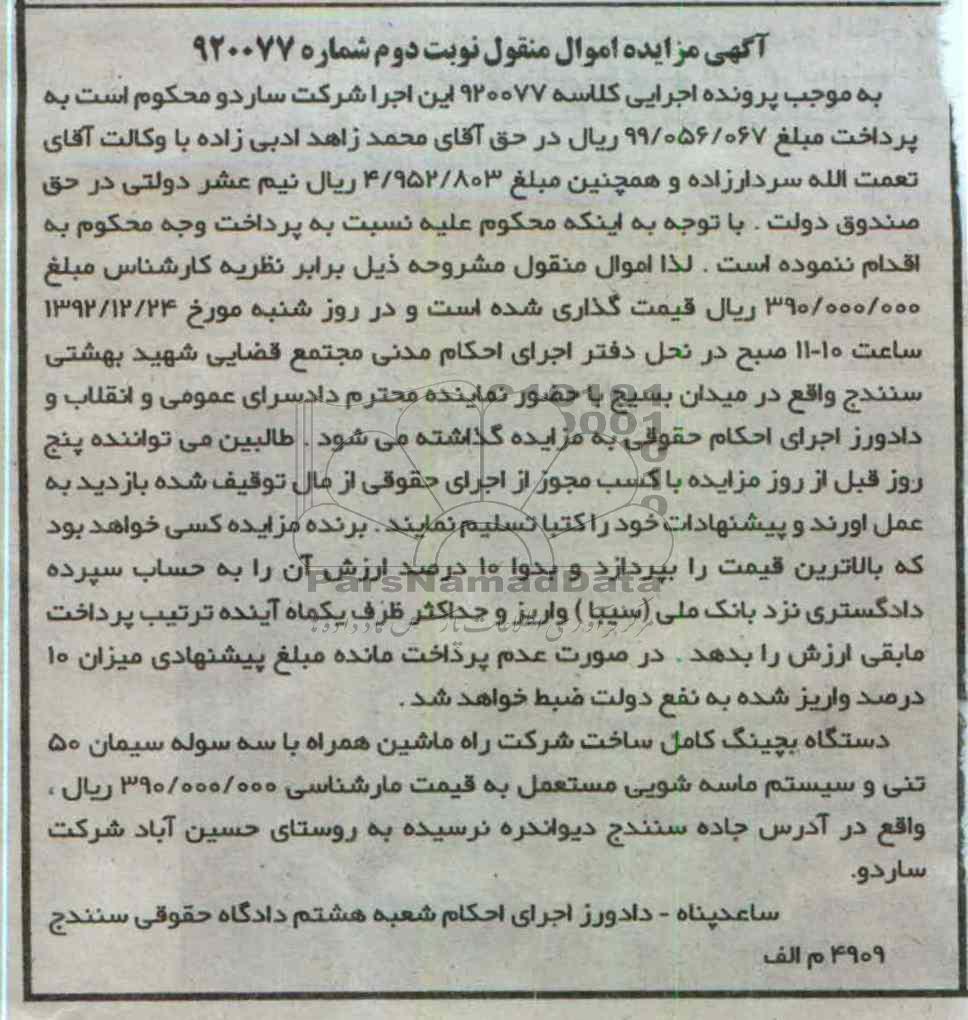 آگهی مزایده اموال منقول نوبت دوم شماره ۹۲۰۰۷۷
به موجب پرونده اجرایی کلاسه ۹۲۰۰۷۷ این اجرا شرکت ساردو محکوم است به
پرداخت مبلغ ۹۹/۰۵۶/۰۶۷ ریال در حق آقای محمد زاهد ادبی زاده با وکالت آقای
تعمت الله سردارزاده و همچنین مبلغ ۴/۹۵۲/۸۰۳ ریال نیم عشر دولتی در حق
صندوق دولت . با توجه به اینکه محکوم علیه نسبت به پرداخت وجه محکوم به
اقدام ننموده است . لذا اموال منقول مشروحه ذیل برابر نظریه کارشناس مبلغ
۳۹۰/۰۰۰/۰۰۰ ریال قیمت گذاری شده است و در روز شنبه مورخ ۱۳۹۲/۱۲/۲۴
ساعت ۱۰-۱۱ صبح در نحل دفتر اجرای احکام مدنی مجتمع قضایی شهید بهشتی
سنندج واقع در میدان بسیج با حضور نماینده محترم دادسرای عمومی و انقلاب و
دادورز اجرای احکام حقوقی به مزایده گذاشته می شود . طالبین می تواننده پنج
روز قبل از روز مزایده با کسب مجوز از اجرای حقوقی از مال توقیف شده بازدید به
عمل اورند و پیشنهادات خود را کتبا تسلیم نمایند . برنده مزایده کسی خواهد بود
که بالاترین قیمت را بپردازد و بدوا ۱۰ درصد ارزش آن را به حساب سپرده
دادگستری نزد بانک ملی (سیبا ) واریز و حداکثر ظرف یکماه آینده ترتیب پرداخت
مابقی ارزش را بدهد . در صورت عدم پرداخت مانده مبلغ پیشنهادی میزان ۱۰
درصد واریز شده به نفع دولت ضبط خواهد شد .
دستگاه بچینگ کامل ساخت شرکت راه ماشین همراه با سه سوله سیمان ۵۰
تنی و سیستم ماسه شویی مستعمل به قیمت مارشناسی ۳۹۰/۰۰۰/۰۰۰ ریال ،
واقع در آدرس جاده سنندج دیواندره نرسیده به روستای حسین آباد شرکت
ساردو.
ساعدپناه - دادورز اجرای احکام شعبه هشتم دادگاه حقوقی سنندج
۴۹۰۹ م الف
ParsNamadData